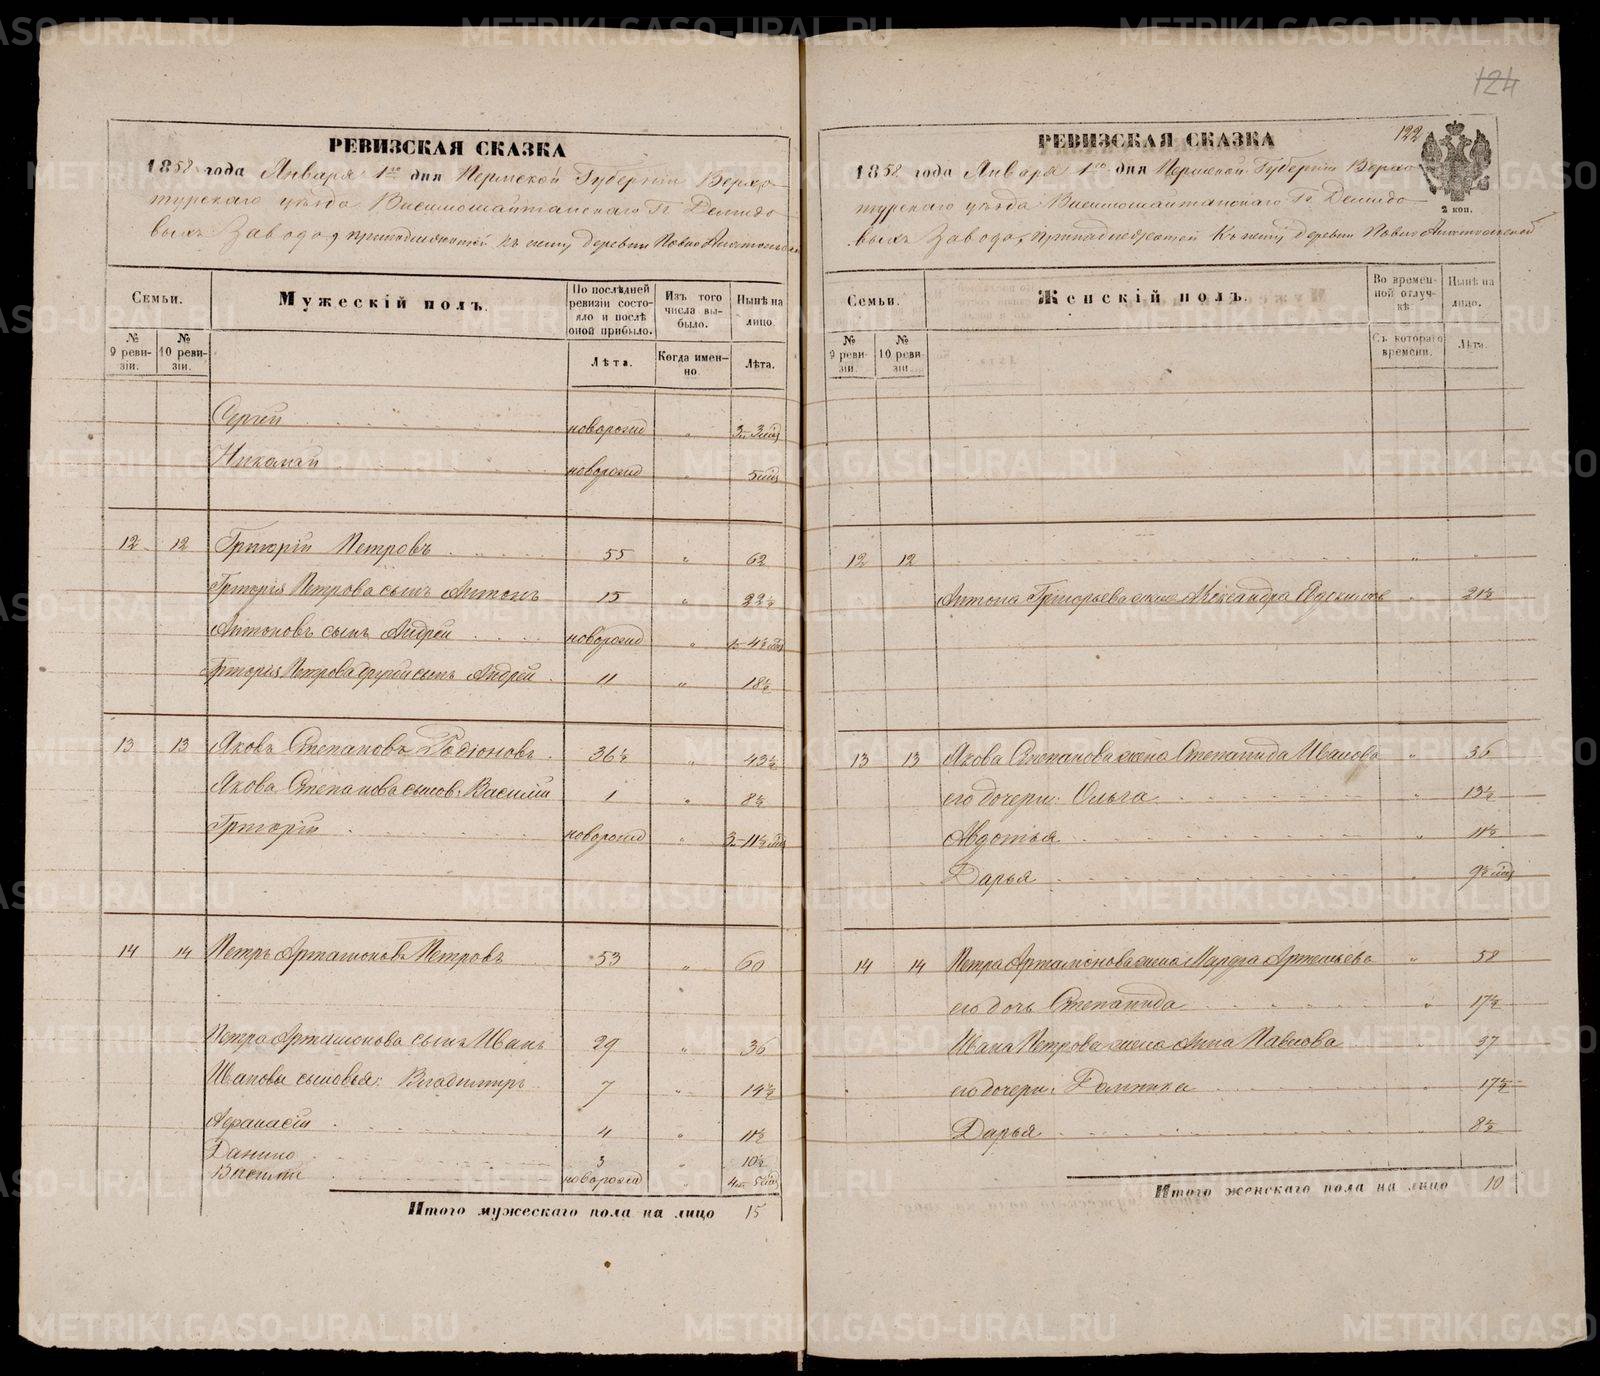 124
РЕВИЗСКАЯ СКАЗКА
1858 года Января 1го дня Пермской Губернiи Верхо
турскаго уѣзда Висимошайтанскаго Гг. Демидо
выхъ Завода, принадлежащей къ нему деревни
Семьи.
Мужескiй полъ.
По послѣдней ревизiи состояло и послѣ оной прибыло.
Изъ того числа выбыло.
Нынѣ на лицо
№ 9 ревизiи.
№ 10 ревизiи.
Лѣта.
Когда именно
Лѣта.
Сергѣй новорожд „ 3
Николай новорожд „ 5 мѣс
12 12 Григорiй Петровъ 55 „ 62
Григорiя Петрова сынъ Антонъ 15 „ 22½
Антоновъ сынъ Андрей новорожд „
Григорiя Петрова другой сынъ Андрей 11 „ 18½
13 13 Яковъ Степановъ Родiоновъ 36½ „ 43½
Якова Степанова сынов: Василiй 1 „ 8½
Григорiй новорожд „
14 14 Петръ Артамоновъ Петровъ 53 „ 60
Петра Артамонова сынъ Иванъ 29 „ 36
Ивановы сыновья: Владимiръ 7 „ 14½
Афанасiй 4 „ 11½
Данило 3 „ 10½
новорожд „
Итого мужескаго пола на лицо 15
РЕВИЗСКАЯ СКАЗКА
122
1858 года Января 1го дня Пермской Губернiи Верхо
турскаго уѣзда Висимошайтанскаго Гг. Демидо
2 коп.
выхъ Завода, принадлежащей къ нему деревни
Семьи.
Женскiй полъ.
Во временной отлучкѣ.
Нынѣ на лицо.
№ 9 ревизiи.
№ 10 ревизiи.
Съ котораго времени.
Лѣта.
12 12 „
Антона Григорьева жена Александра „ 21½
13 13 Якова Степанова жена Степанида Иванова „ 36
его дочери: Ольга „ 13½
Авдотья „ 11½
Дарья „ 9½ мѣс
14 14 Петра Артамонова жена Марфа Артемьева „ 58
его дочь Степанида „ 17½
Ивана Петрова жена Анна Павлова „ 37
его дочери: Домника 17½
Дарья 8½
Итого женскаго пола на лицо 10
METRIKI.GASO-URAL.RU